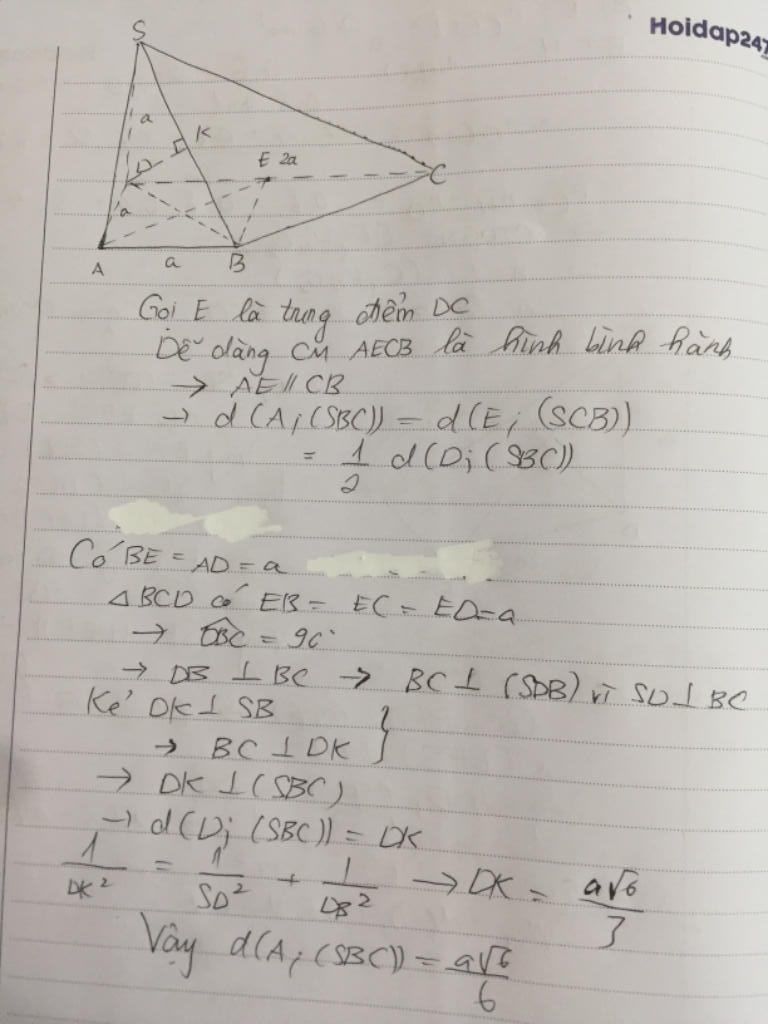 Hoidap247
S
a
K
D
E 2a
C
a
A
a
B
Gọi E là trung điểm DC
Dễ dàng CM AECB là hình bình hành
→ AE // CB
→ d(A; (SBC)) = d(E; (SCB))
= 1/2 d(D; (SBC))
Có BE = AD = a
△BCD có EB = EC = ED = a
→ DBC = 90°
→ DB ⊥ BC → BC ⊥ (SDB) vì SD ⊥ BC
Kẻ DK ⊥ SB }
→ BC ⊥ DK
→ DK ⊥ (SBC)
→ d(D; (SBC)) = DK
1/DK² = 1/SD² + 1/DB² → DK = a√6/3
Vậy d(A; (SBC)) = a√6/6